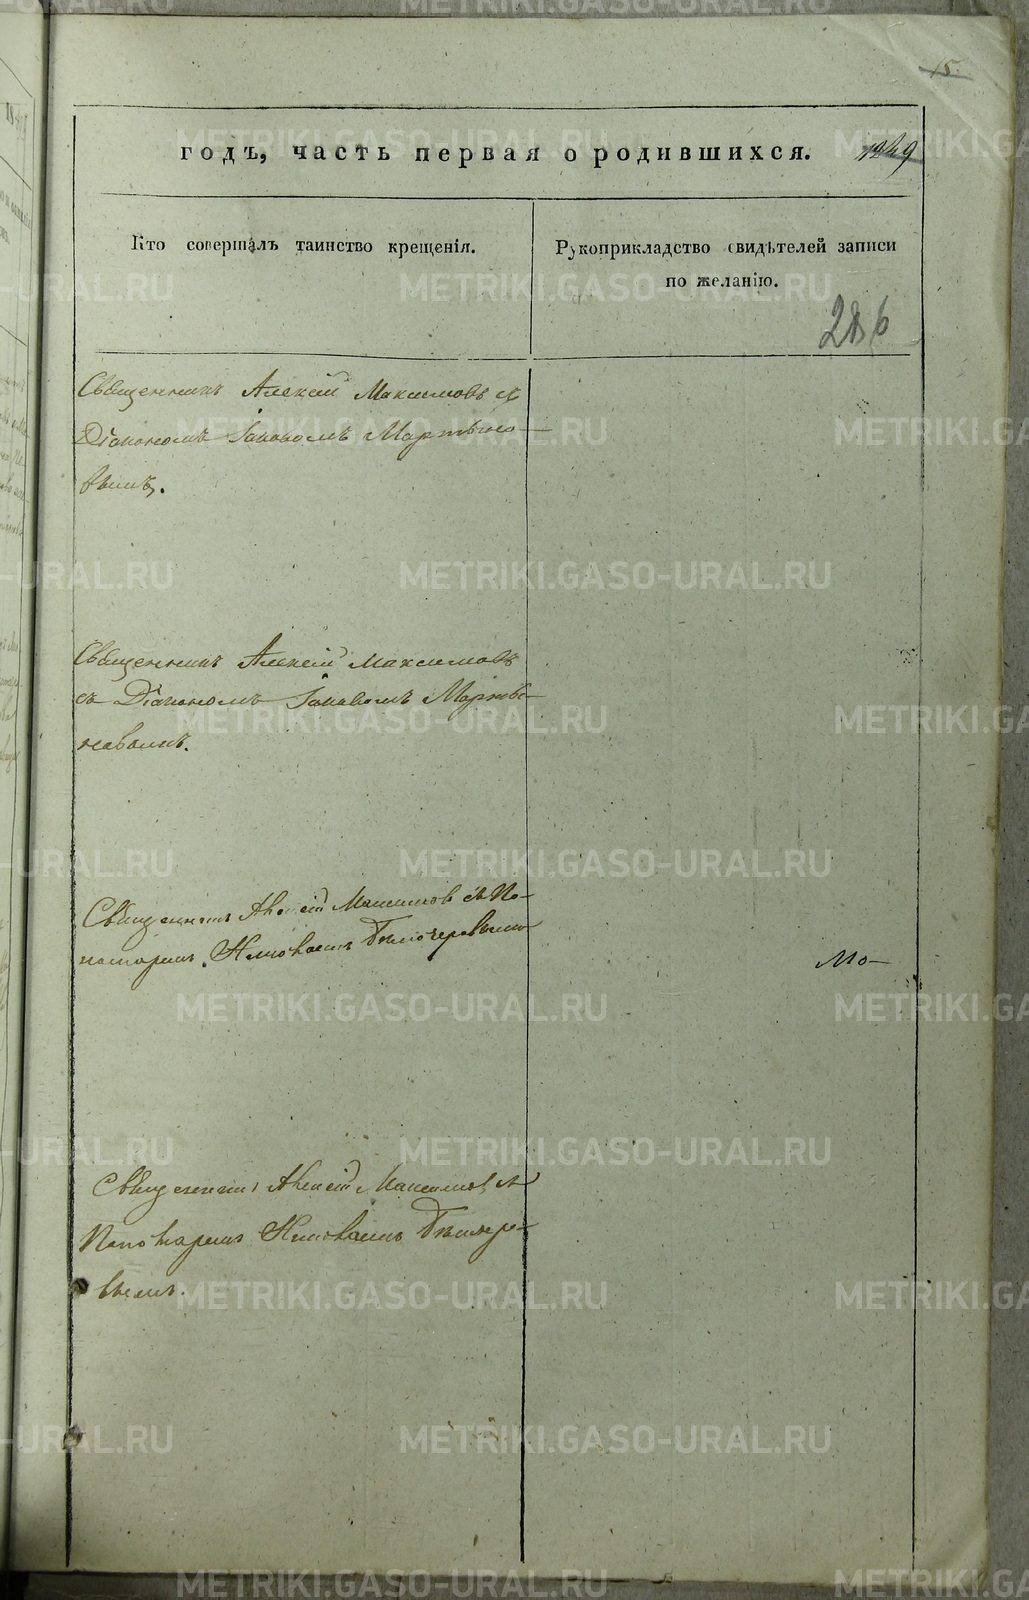 15.
годъ, часть первая о родившихся.
Кто совершалъ таинство крещенія.
Рукоприкладство свидѣтелей записи
по желанію.
286
Священникъ Алексій Максимовъ съ
Діакономъ Іаковомъ Мартыно-
вымъ.
Священникъ Алексій Максимовъ
съ Діакономъ Іаковомъ Марты-
новымъ.
Священникъ Алексій Максимов съ По-
номаремъ
Мо-
Священникъ Алексій Максимов съ
Пономаремъ
вымъ.
METRIKI.GASO-URAL.RU